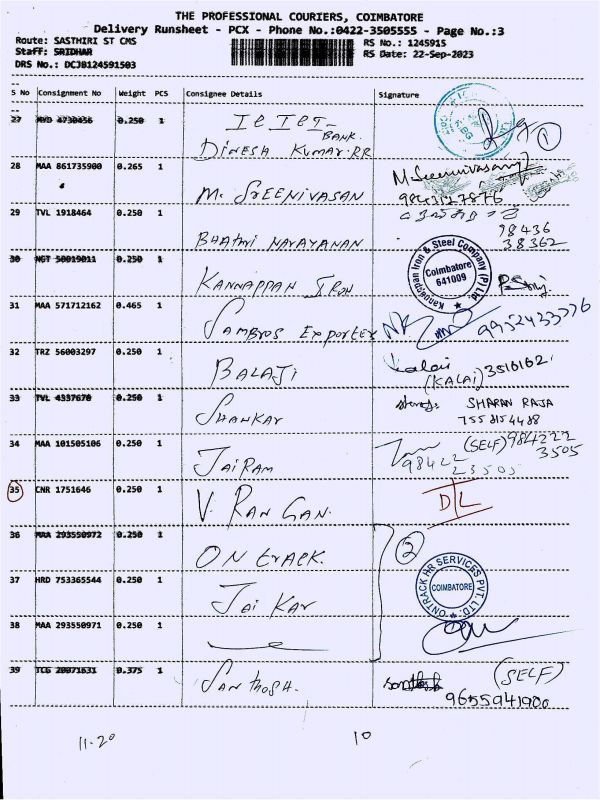 THE PROFESSIONAL COURIERS, COIMBATORE
Delivery Runsheet - PCX - Phone No.:0422-3505555 - Page No.:3
Route: SASTHIRI ST CMS
RS No.: 124591S
Staff: SRIDHAR
RS Date: 22-Sep-2023
DRS No.: DCJB124591503
S No Consignment No Weight PCS Consignee Details Signature
27 MYD 4730456 0.250 1 BANK. 1
DINESH KUMAR.RR
28 MAA 861735900 0.265 1 M. SREENIVASAN
M. Sreenivasan
9843127876
29 TVL 1918464 0.250 1 NARAYANAN
98436
38362
30 NGT 50019011 0.250 1 KANNAPPAN IRON
Kannappan Iron & Steel Company (P) Ltd.
Coimbatore
641009
31 MAA 571712162 0.465 1 Sambros Exporter
9952433776
32 TRZ 56003297 0.250 1 BALAJI
kalai 3516162
(KALAI)
33 TVL 4337670 0.250 1 SHANKAR
SHARAN RAJA
34 MAA 101505106 0.250 1 JAIRAM
(SELF) 984222
3505
98422
23505
35 CNR 1751646 0.250 1 V. RANGAN.
D/L
36 MAA 293550972 0.250 1 ON track.
2
ONTRACK HR SERVICES PVT. LTD.
COIMBATORE
37 HRD 753365544 0.250 1 JAI KAR
38 MAA 293550971 0.250 1
39 TCG 20071631 0.375 1 SANTHOSH.
(SELF)
9655941900
11.20
10